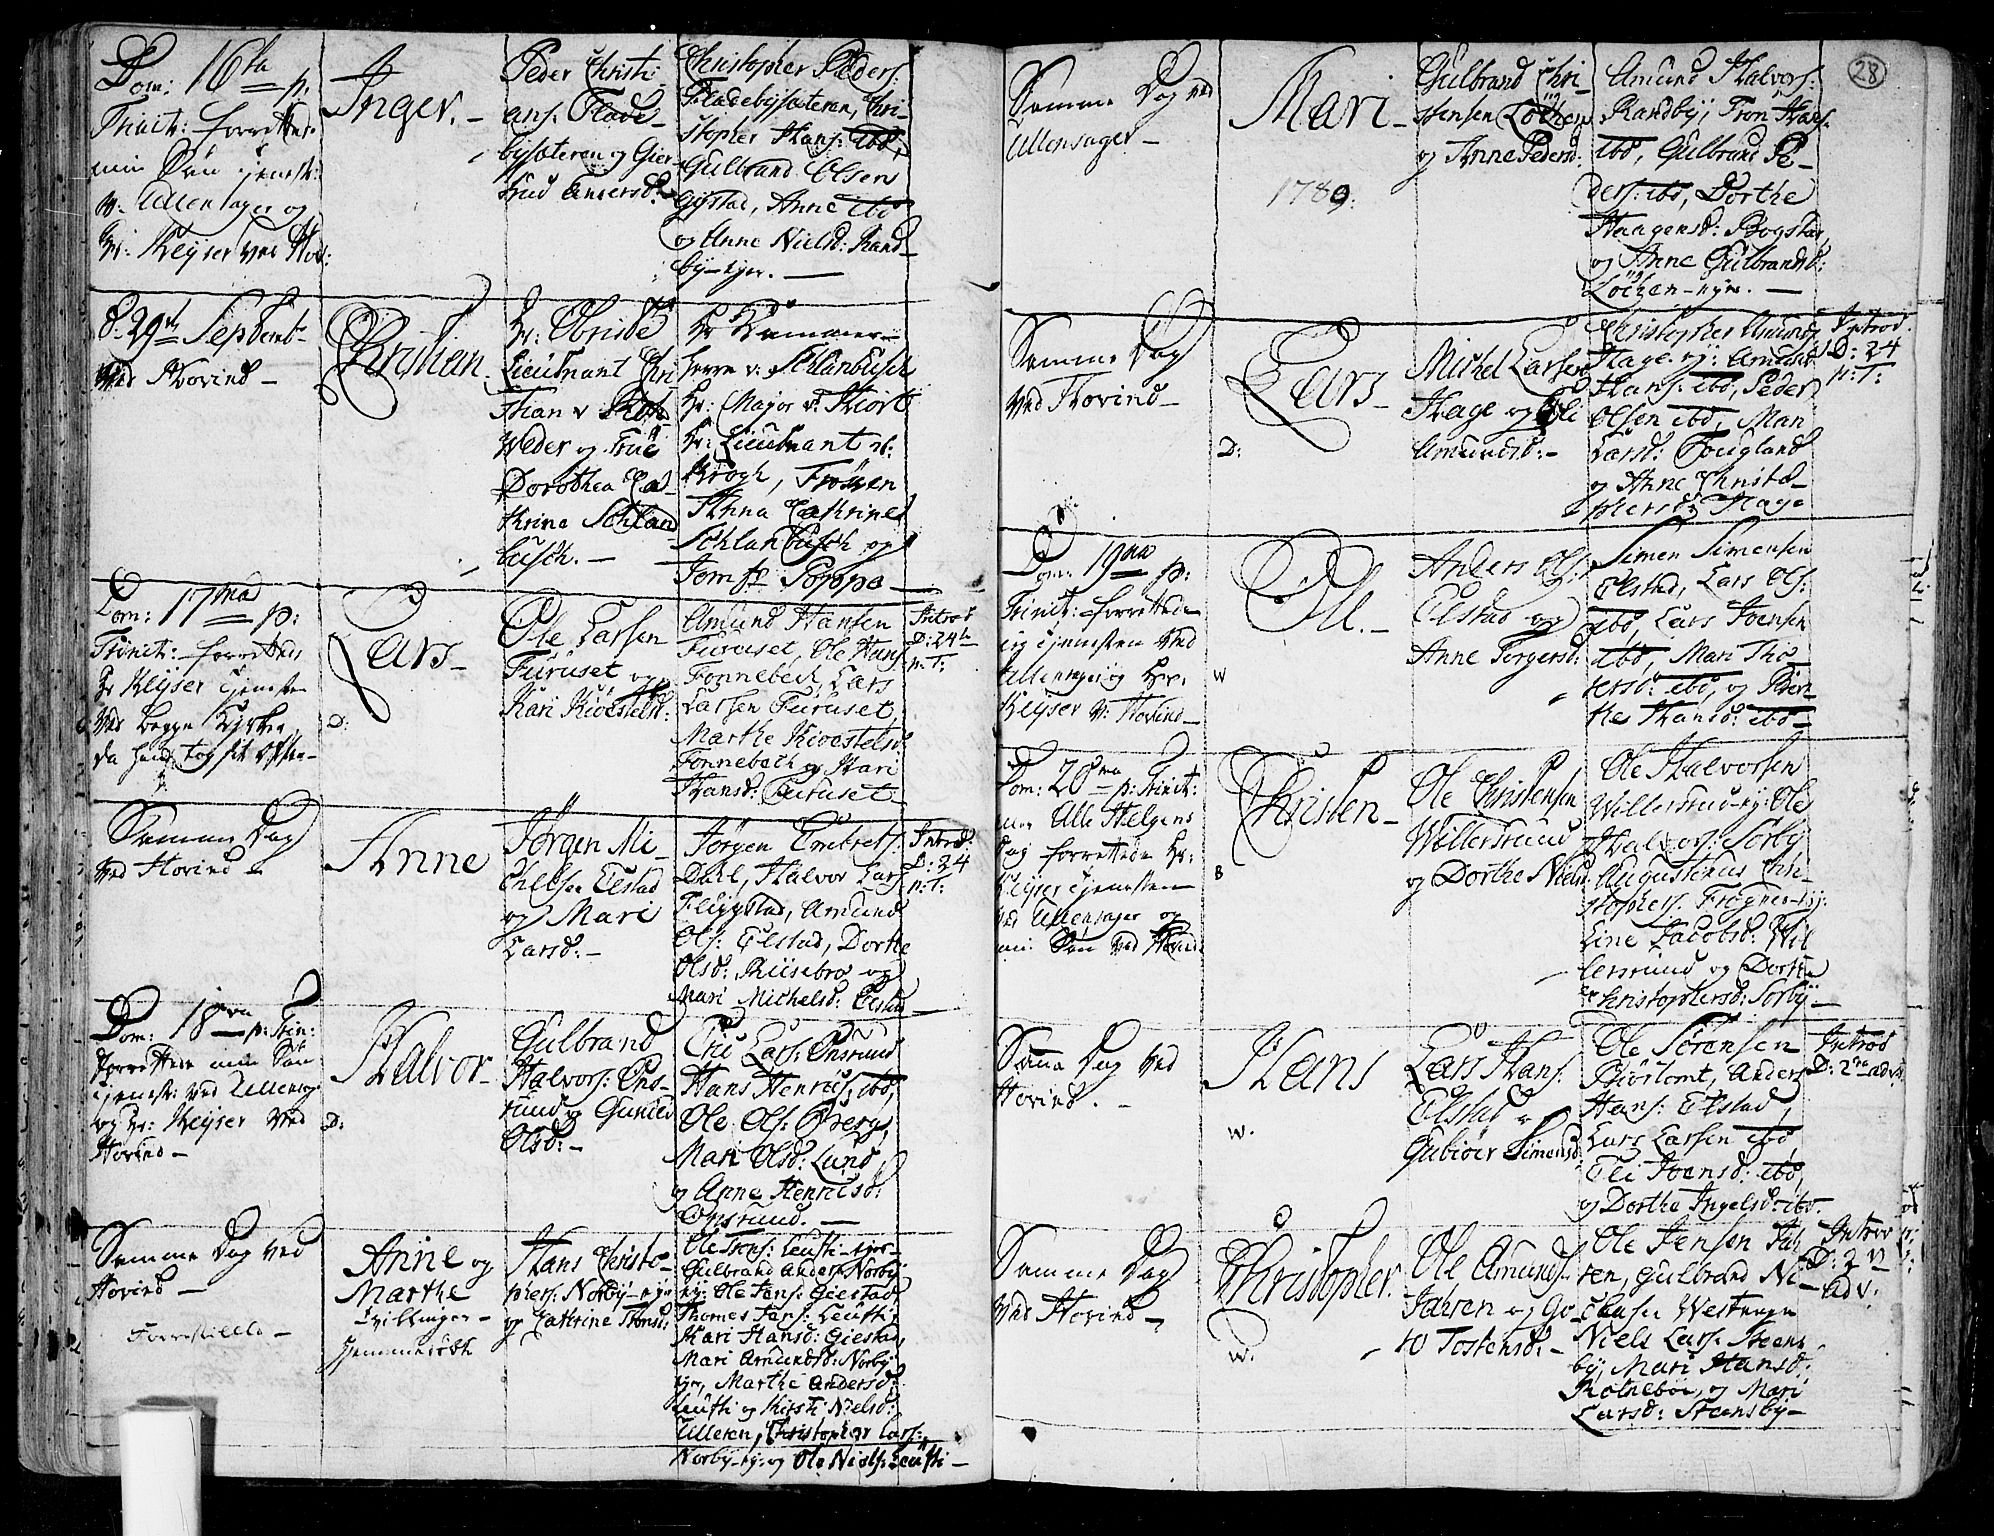 Dom: 16ta p.
Trinit: forrettede
min Søn tjenest:
v: Ullensager og
Hr: Keyser ved Hov:
Inger. -
Peder Christi-
ans: Flade-
bysæteren og Gier
trud Andersd:
Christopher Peders:
Fladebysæteren, Chri-
stopher Hans: ibd,
Gulbrand Olsen
Gystad, Anne ibd
og Anne Nielsd: Rand-
by-ejer. -
d. 29th Septemb-
ved Hovind -
Christian
Hr: Obriste
Lieutnant Chri
stian v
Weder og Frue
Dorothea Ca-
thrina Schlan
busch. -
Hr Kammer-
herre v: Schlanbusch
Hr: Major v: Hiort
Hr: Lieutnant v:
Krogh, Frøken
Anna Cathrine
Schlanbusch og
Jomfr Poppe -
Dom: 17mad p:
Trinit: forrettede
Hr Keyser tjenesten
ved begge Kirker,
da hand tog sit Offer-
D:
Lars -
Ole Larsen
Furuset og
Kari Kioestelsd:
Amund Hansen
Furuset, Ole Hans
Fonnebech, Lars
Larsen Furuset,
Marthe Kioestelsd:
Fonnebech og Kari
Hansd: Furuset -
Introd
D: 24
p: T:
Samme Dag
ved Hovind -
Anne
Jørgen Mi-
chelsen Elstad
og Mari
Larsd: -
Jørgen Embrets:
Dahl, Halvor Lars
Flygstad, Amund
Ols: Elstad, Dorthe
Olsd: Riisebro og
Mari Michelsd: Elstad
Introd:
D: 24
p: T:
Dom: 18va p: Trin:
forrettede min Søn
tjenest: ved Ullensag
og Hr: Keyser ved
Hovind -
D:
Halvor -
Gulbrand
Halvors: Ons-
rund og Gunild
Olsd: -
Eric Lars: Onsrund
Hans Henrics: ibd,
Ole Ols: Øberg,
Mari Olsd: Lund
og Anne Henricsd:
Onsrund. -
Samme Dag ved
Hovind -
Forrestillede -
Anne og
Marthe
tvillinger -
hjemmedøbt
Hans Christo-
phers: Norby-eje
og Cathrine Thomsd:
Ole Jens: Leufti-ejer-
Gulbrand Anders Norby
ej: Ole Jans: Giestad
Thomes Jans: Leufti,
Kari Hansd: Giestad,
Mari Amundsd: Norby
ejer, Marthe Andersd:
Leufti og Kirsti Nielsd:
Ulleren, Christopher Lars:
Norby-ej: og Ole Niels: Leufti -
28
Samme Dag ved
Ullensager -
Mari -
1789:
Gulbrand Chri-
stensen Löchen
og Anne Pedersd:
Amund Halvors:
Randby, Tron Hans:
ibd, Gulbrand Pe-
ders: ibd, Dorthe
Haagensd: Bogstad,
og Anne Gulbrandsd:
Löchen-ejer. -
Samme Dag
ved Hovind -
D:
Lars -
Michel Larsen
Hage og Eli
Amundsd: -
Christopher Amunds
Hage ej: Amund
Hans: ibd, Peder
Olsen ibd, Mari
Larsd: Fougland
og Anne Christo-
phersd: Hage
Introd.
D: 24
p: T:
Dom: 19na p:
Trinit: forrettede
jeg tjenesten ved
Ullensager og Hr:
Keyser v: Hovind -
W
Ole. -
Anders Ols:
Elstad og
Anne Torgersd:
Simen Simensen
Elstad, Lars Ols:
ibd, Lars Joensen
ibd, Mari Tho-
resd: ibd, og Bier-
the Hansd: ibd -
Dom: 20ma p: Trinit:
Alle Helgens
Dag forrettede Hr:
Keyser tjenesten
ved Ullensager og
min Søn ved Hovind
B
Christen -
Ole Christensen
Willersrund
og Dorthe Nielsd
Ole Halvorsen
Willersrud-ej: Ole
Halvors: Sorby
Augustinus Chri-
stophers: Frogner-ej:
Line Jacobsd: Wil
lersrund og Dorthe
Christophersd: Sorby -
Samme Dag ved
Hovind. -
W.
Hans
Lars Hans:
Elstad og
Gubiöer Simensd
Ole Sörensen
Biörtomt, Anders
Hans: Elstad,
Lars Larsen ibd,
Eli Joensd: ibd,
og Dorthe Ingelsd: ibd.
Introd
D: 2na adv:
Samme Dag
ved Hovind -
W.
Christopher
Ole Amunds:
Jahren og Go-
ro Tostensd: -
Ole Jensen Jah
ren, Gulbrand Ni-
elsen Westengen
Niels Lars: Steens
by, Mari Hansd:
Rotneboe, og Mari
Larsd: Steensby -
Introd
D: 2
adv: